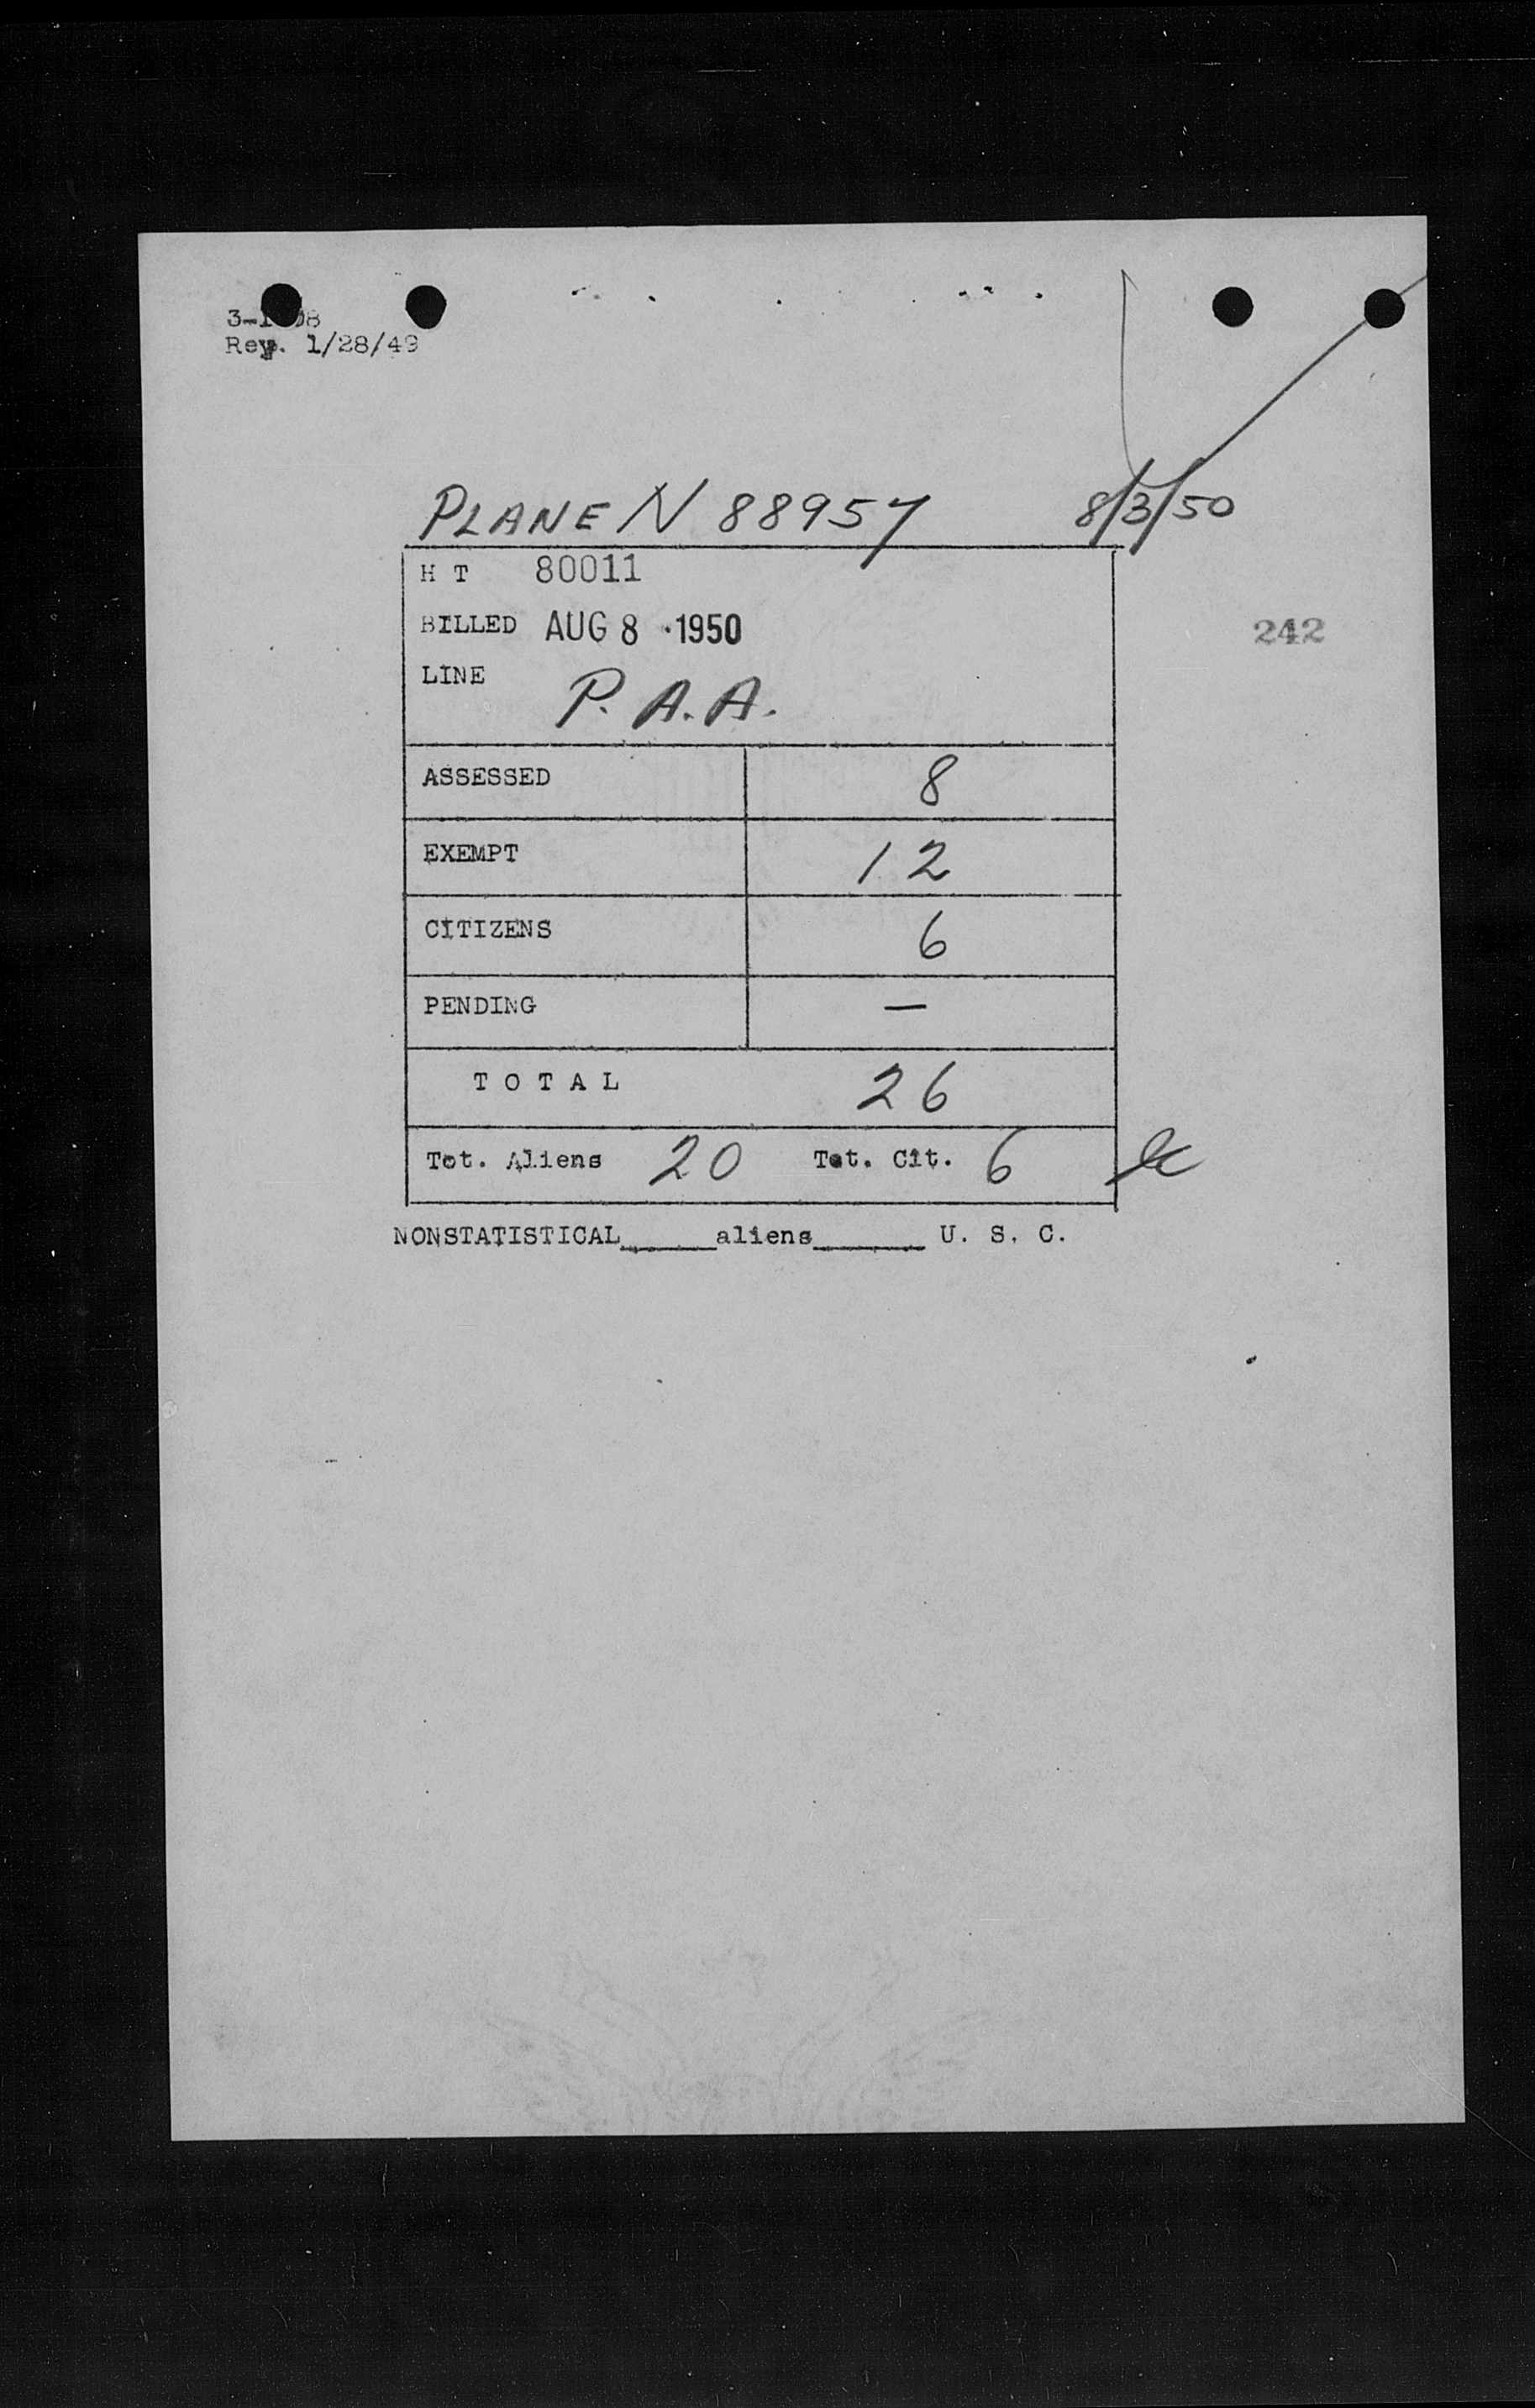 Rev. 1/28/49
PLANE N 88957 8/3/50
H T 80011
BILLED AUG 8 1950
242
LINE P. A. A.
ASSESSED 8
EXEMPT 12
CITIZENS 6
PENDING —
TOTAL 26
Tot. Aliens 20 Tot. Cit. 6
NONSTATISTICAL_____aliens______ U. S. C.